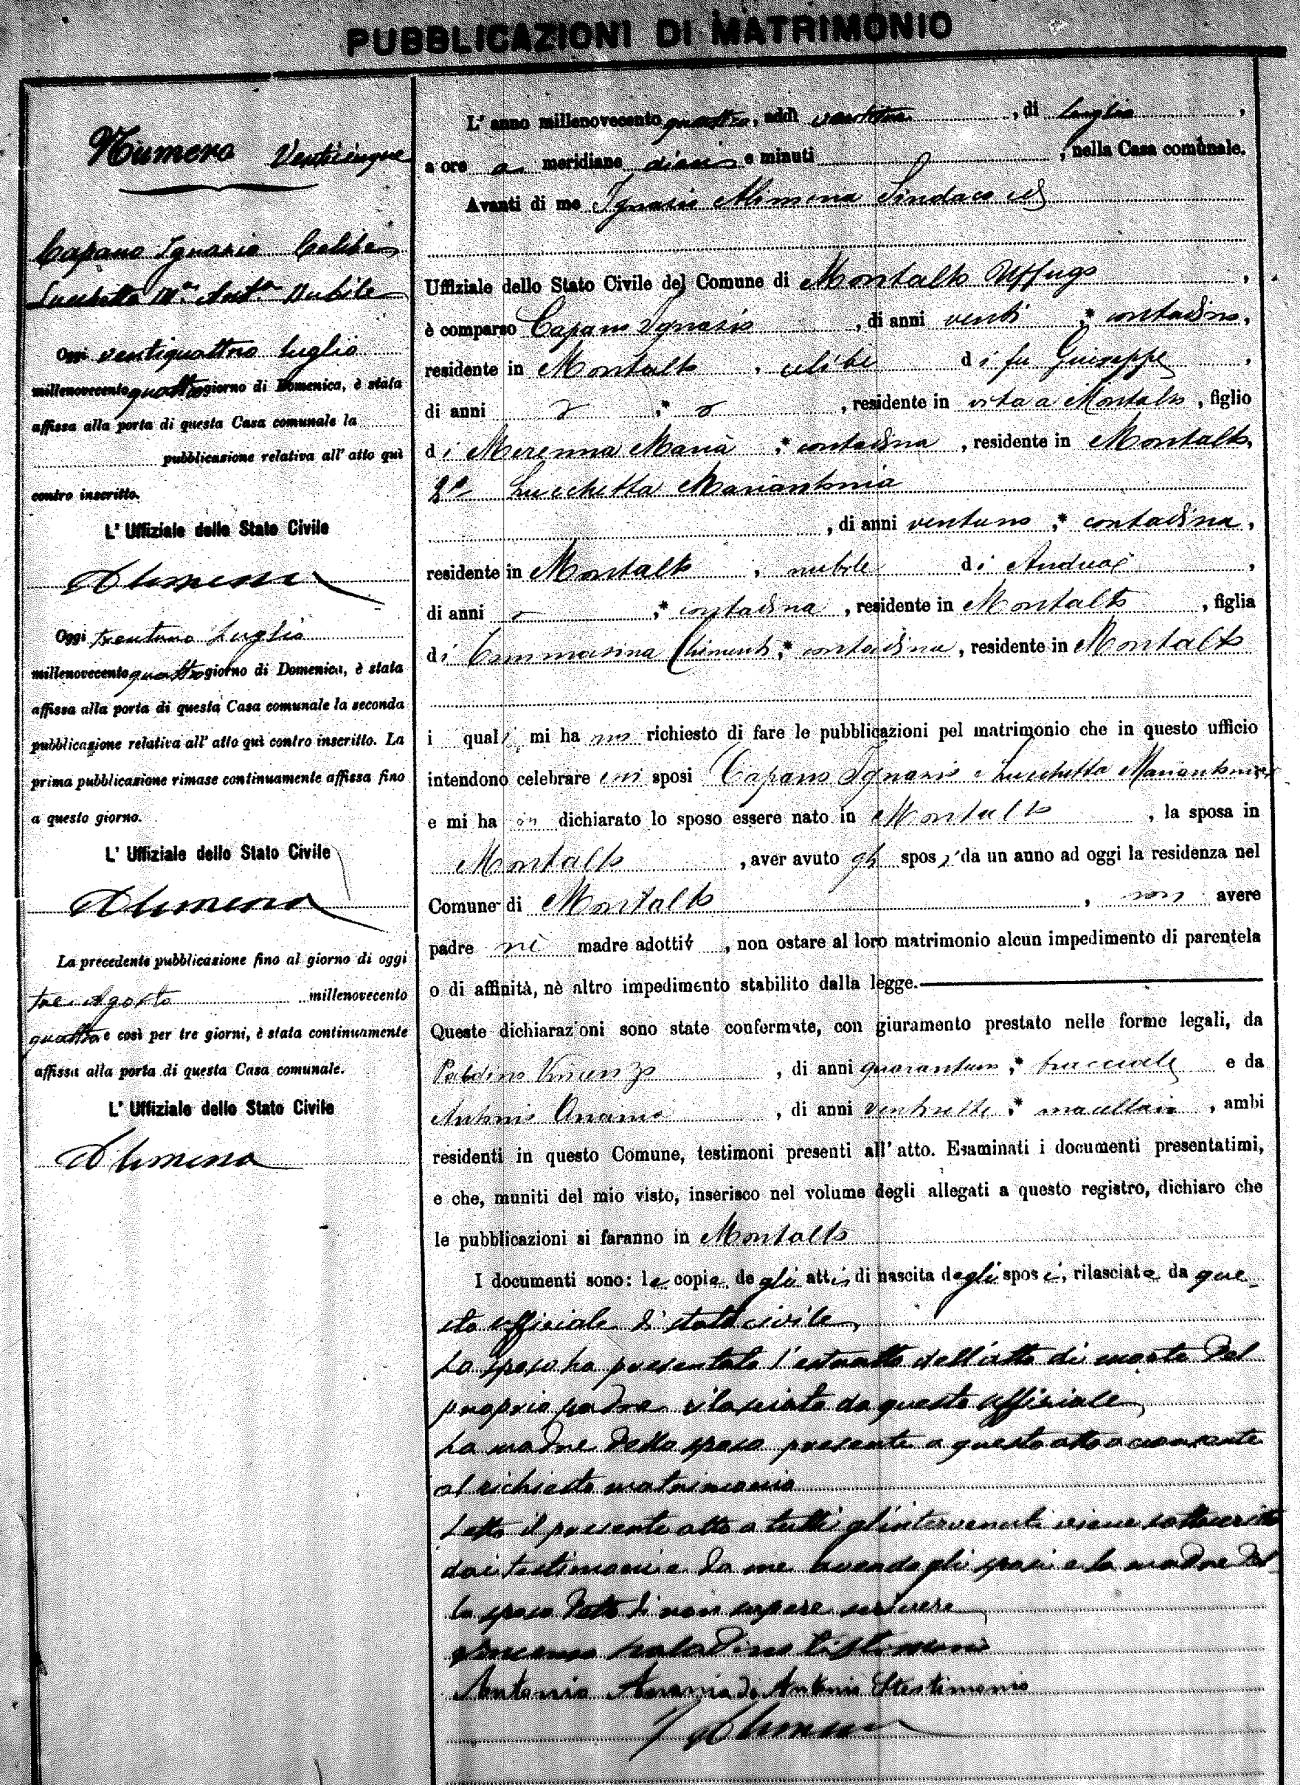 PUBBLICAZIONI DI MATRIMONIO
Numero Venticinque
Capano Ignazio Celibe
Lucchetta M.ª Ant.ª Nubile
Oggi ventiquattro luglio
millenovecento quattro giorno di Domenica, è stata
affissa alla porta di questa Casa comunale la
pubblicazione relativa all' atto quì
contro inscritto.
L' Uffiziale dello Stato Civile
Alimena
Oggi trentuno Luglio
millenovecento quattro giorno di Domenica, è stata
affissa alla porta di questa Casa comunale la seconda
pubblicazione relativa all' atto quì contro inscritto. La
prima pubblicazione rimase continuamente affissa fino
a questo giorno.
L' Uffiziale dello Stato Civile
Alimena
La precedente pubblicazione fino al giorno di oggi
tre Agosto millenovecento
quattro e così per tre giorni, è stata continuamente
affissa alla porta di questa Casa comunale.
L' Uffiziale dello Stato Civile
Alimena
L' anno millenovecento quattro, addì , di luglio,
a ore a meridiane dieci e minuti , nella Casa comunale.
Avanti di me Ignazio Alimena Sindaco ed
Uffiziale dello Stato Civile del Comune di Montalto Uffugo,
è comparso Capano Ignazio, di anni venti, * contadino,
residente in Montalto, celibe di fu Giuseppe,
di anni , * , residente in vita a Montalto, figlio
di Merenna Maria, * contadina, residente in Montalto,
2º Lucchetta Mariantonia
, di anni ventuno, * contadina,
residente in Montalto, nubile di Andrea,
di anni , * contadina, residente in Montalto, figlia
di Tummasina Chimenti, * contadina, residente in Montalto
i quali mi hanno richiesto di fare le pubblicazioni pel matrimonio che in questo ufficio
intendono celebrare essi sposi Capano Ignazio e Lucchetta Mariantonia
e mi hanno dichiarato lo sposo essere nato in Montalto, la sposa in
Montalto, aver avuto gli sposi da un anno ad oggi la residenza nel
Comune di Montalto, non avere
padre nè madre adottivi, non ostare al loro matrimonio alcun impedimento di parentela
o di affinità, nè altro impedimento stabilito dalla legge.
Queste dichiarazioni sono state confermate, con giuramento prestato nelle forme legali, da
Paladino Vincenzo, di anni quarantuno, * bracciale e da
Antonio Anania, di anni ventisette, * macellaio, ambi
residenti in questo Comune, testimoni presenti all' atto. Esaminati i documenti presentatimi,
e che, muniti del mio visto, inserisco nel volume degli allegati a questo registro, dichiaro che
le pubblicazioni si faranno in Montalto
I documenti sono: le copie degli atti di nascita degli sposi, rilasciate da que-
sto uffiziale di stato civile,
Lo sposo ha presentato l'estratto dell'atto di morte del
proprio padre rilasciato da questo uffiziale,
La madre dello sposo presente a questo atto acconsente
al richiesto matrimonio
Letto il presente atto a tutti gl'intervenuti viene sottoscritto
dai testimoni e da me avendo gli sposi e la madre del
lo sposo detto di non sapere scrivere
Vincenzo Paladino testimonio
Antonio Anania di Antonio testimonio
Alimena